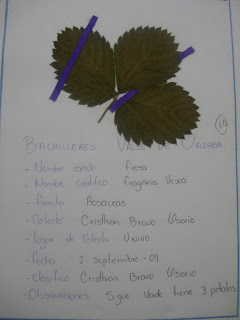 10
BACHILLERES VALLE DE ORIZABA
- Nombre común fresa
- Nombre científico fragaria Vesca
- familia Rosaceas
- Colecto Cristhian Bravo Osorio
- lugar de Colecta Vivivo.
- fecha 2-septiembre-09
- Clasifico Cristhian Bravo Osorio
- Observaciones Sigue Verde tiene 3 petalos